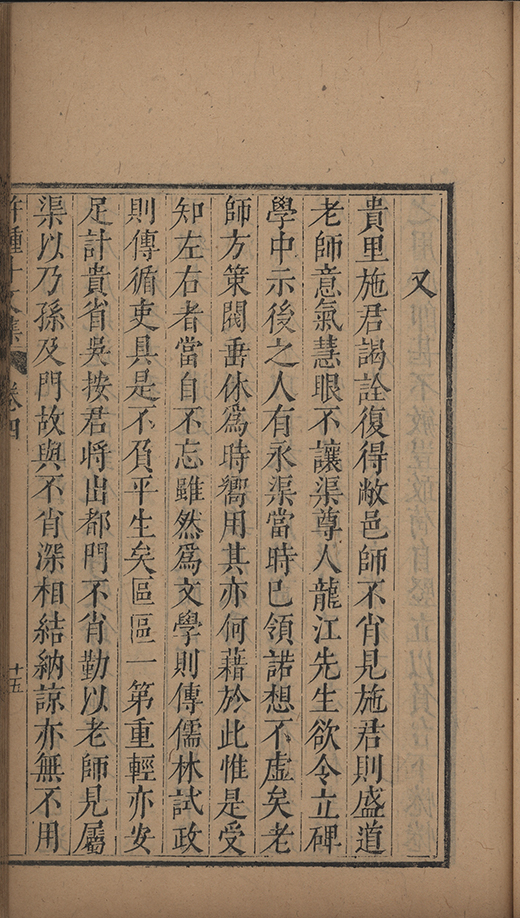 又
貴里施君謁詮復得敝邑師不肖見施君則盛道
老師意氣慧眼不讓渠尊人龍江先生欲令立碑
學中示後之人有永渠當時已領諾想不虛矣老
師方策閥垂休爲時嚮用其亦何藉於此惟是受
知左右者當自不忘雖然爲文學則傳儒林試政
則傳循吏具是不負平生矣區區一第重輕亦安
足計貴省吳按君將出都門不肖勤以老師見屬
渠以乃孫及門故與不肖深相結納諒亦無不用
許鍾斗文集 卷四 十五